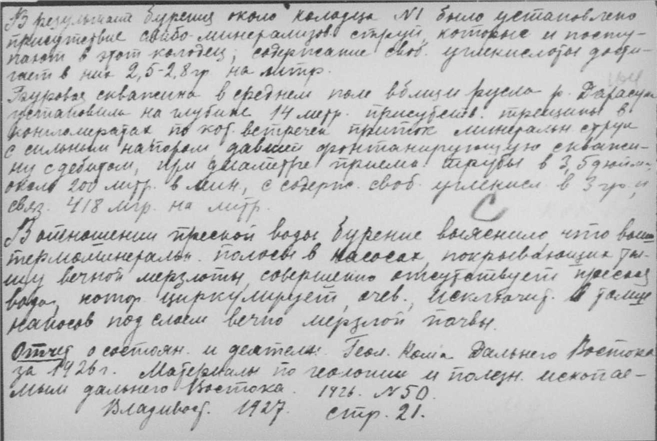 В результате бурения около колодца №1 было установлено
присутствие слабо минерализов. струй, которые и посту-
пают в этот колодец; содержание своб. углекислоты дости-
гает в них 2,5-2,8 гр. на литр.
Буровая скважина в среднем поле вблизи русла р. Дарасун
установила на глубине 14 метр. присутств. трещины в
конгломератах по кот. встречен приток минеральн струи
с сильным напором давшей фонтанирующую скважи-
ну с дебитом, при диаметре приема трубы в 3,5 дюйма,
около 200 литр. в мин, с содерж. своб. углекисл. в 3 гр, и
связ. 418 мгр. на литр.
В отношении пресной воды бурение выяснило, что
термоминеральн. полосы в насосах, покрывающих тол-
щу вечной мерзлоты, совершенно отсутствует пресная
вода, котор. циркулирует, очев., исключит. в толще
наносов под слоем вечно мерзлой почвы.
Отчет о состоян. и деятельн. Геол. Кома Дальнего Востока
за 1926 г. Материалы по геологии и полезн. ископае-
мым дальнего Востока. 1926. №50.
Владивост. 1927. стр. 21.